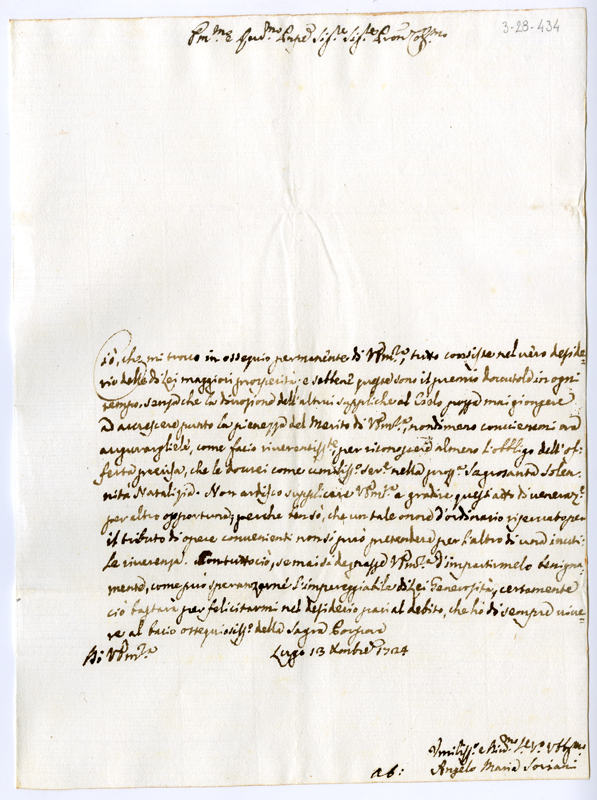 3-28-434
Em.mo e Rev.mo Prnpe Sig.re Sig.re Pron Col.mo
Ciò, che mi trovo in ossequio permanente di V. Em.za, tutto consiste nel vero deside=
rio delle di Lei maggiori prosperità; e sebbene queste sono il premio dovutole in ogni
tempo, senza che la divozione dell'altrui suppliche al Cielo possa mai giongere
ad accrescere punto la pienezza del Merito di V. Em.za, nondimeno conviemmi ora
augurargliele, come facio riverentissi.te, per riconoscere almeno l'obbligo dell'of=
ferta precisa, che le dovrei come umiliss.o Ser.e nella pros.a Sagrosanta Solen=
nità Natalizia. Non ardisco supplicare V. Em.za a gradire quest'atto di veneraz.e
per altro opportuna; perche penso, che un tale onore d'ordinario riservato per
il tributo di opere convenienti non si può pretendere per l'altro di una inuti=
le riverenza. Contuttociò, se mai si degnasse V. Em.za d'impartirmelo benigna=
mente, come può speranzarne l'impareggiabile di Lei Generosità, certamente
ciò bastarà per felicitarmi nel desiderio pari al debito, che hò di sempre vive=
re al bacio ossequiosiss.o della Sagra Porpora
Di V. Em.za
Lugo 13 Xmbre 1724
Umiliss.o e Div.mo Se.re Obb.mo
ab: Angelo Maria Soriani